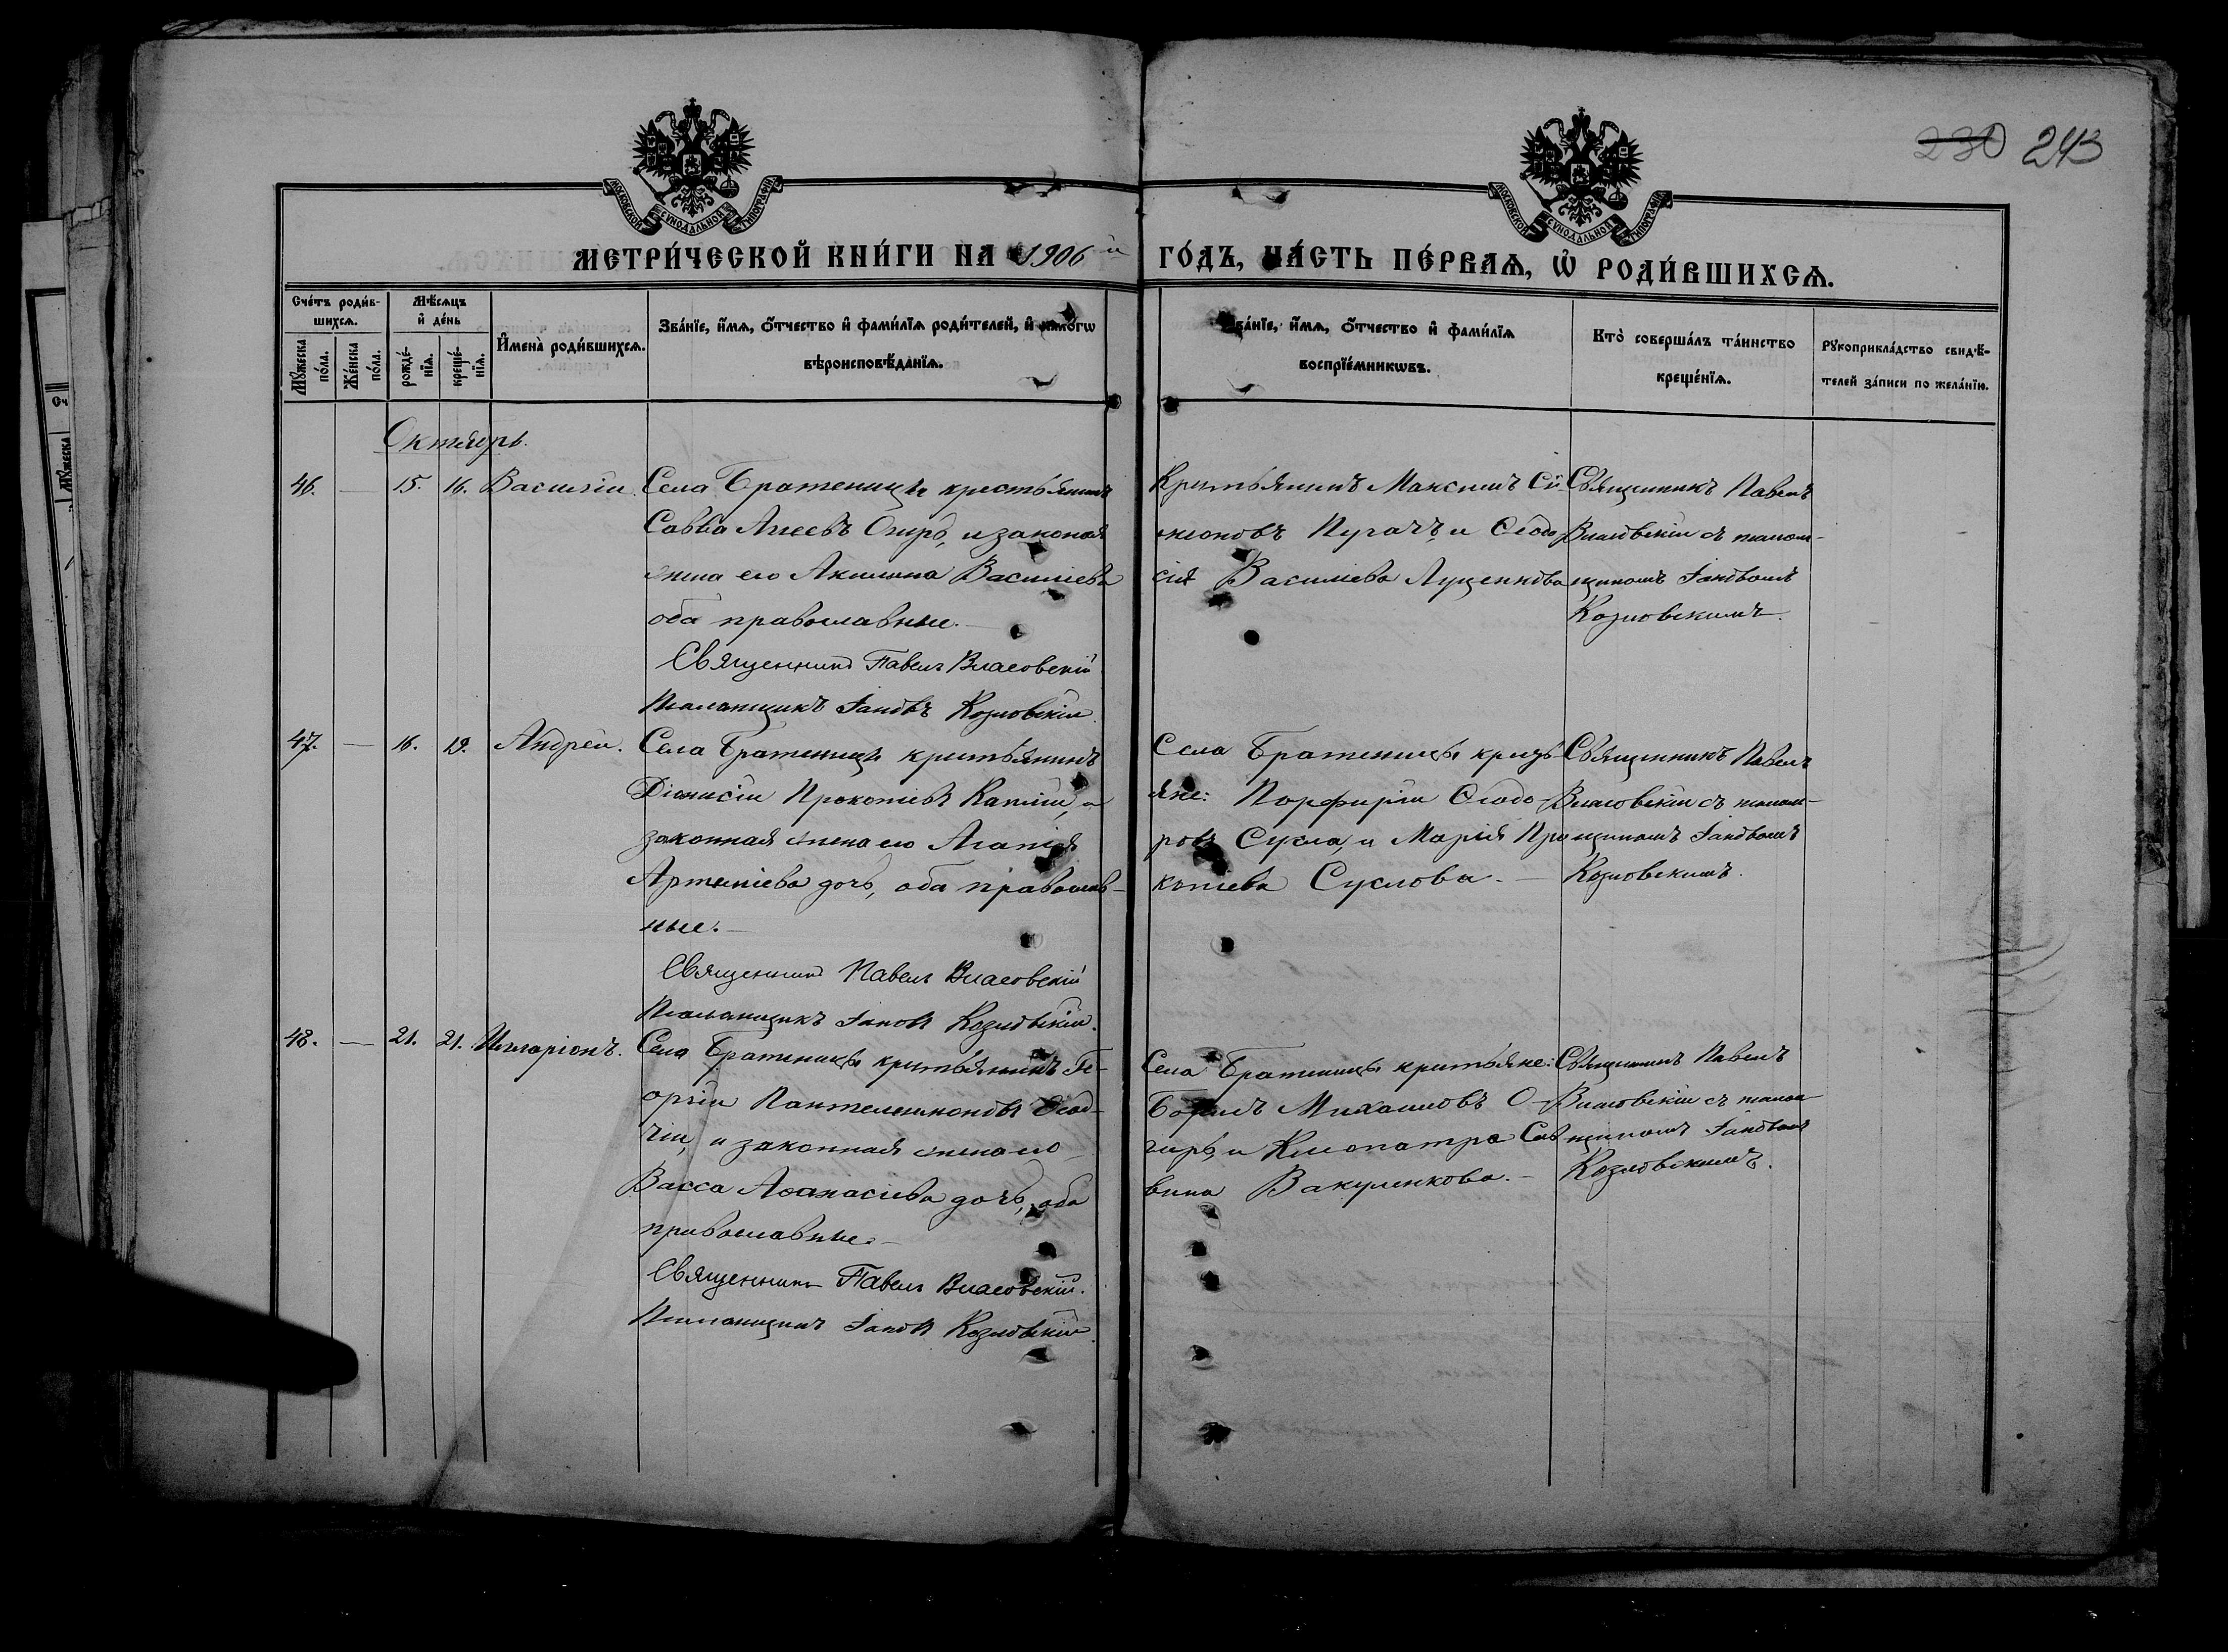 230 243
МОСКОВСКОЙ СѴНОДАЛЬНОЙ ТИПОГРАФІИ
МОСКОВСКОЙ СѴНОДАЛЬНОЙ ТИПОГРАФІИ
МЕТРИ́ЧЕСКОЙ КНИ́ГИ НА 1906й ГО́ДЪ, ЧА́СТЬ ПЕ́РВАѦ, Ѡ҆ РОДИ́ВШИХСѦ.
Сче́тъ роди́в-
шихсѧ.
Мѹ́жеска по́ла.
Же́нска по́ла.
Мѣ́сѧцъ
и҆ де́нь
рожде́-
нїѧ.
креще́-
нїѧ.
И҆мена̀ роди́вшихсѧ.
Зва́нїе, и҆́мѧ, ѻ҆́тчество и҆ фами́лїѧ роди́телей, и҆ како́гѡ
вѣроисповѣ́данїѧ.
Зва́нїе, и҆́мѧ, ѻ҆́тчество и҆ фами́лїѧ
воспрїе́мникѡвъ.
Кто̀ соверша́лъ та́инство
креще́нїѧ.
Рѹкоприкла́дство свидѣ́-
телей за́писи по жела́нїю.
Октябрь.
46. — 15. 16. Василій.
Села Братеницы крестьянинъ
Савва Агеевъ Огирь, и законная
жена его Акилина Василіева
оба православные.
Священникъ Павелъ Власовскій
Псаломщикъ Іаковъ Козловскій.
Крестьянинъ Максимъ Си-
меоновъ Пугачъ, и Ѳеодо
сія Василіева Луценкова
Священникъ Павелъ
Власовскій съ псалом-
щикомъ Іаковомъ
Козловскимъ.
47. — 16. 19. Андрей.
Села Братеницы крестьянинъ
Діонисій Прокопіевъ Капій, и
законная жена его Агапія
Артеміева дочь, оба православ-
ные.—
Священникъ Павелъ Власовскій
Псаломщикъ Іаковъ Козловскій.
Села Братеницы кресть
яне: Порфирій Ѳеодо-
ровъ Сукла, и Марія Про
копіева Суклова.—
Священникъ Павелъ
Власовскій съ псалом-
щикомъ Іаковомъ
Козловскимъ.
48. — 21. 21. Илларіонъ.
Села Братеницы крестьянинъ Ге-
оргій Пантелеимоновъ Осад-
чій, и законная жена его
Васса Аѳанасіева дочь, оба
православные.—
Священникъ Павелъ Власовскій.
Псаломщикъ Іаковъ Козловскій.
Села Братеницы крестьяне:
Борисъ Михаиловъ О-
гирь, и Клеопатра Сав
вина Вакуленкова.—
Священникъ Павелъ
Власовскій съ псалом
щикомъ Іаковомъ
Козловскимъ.